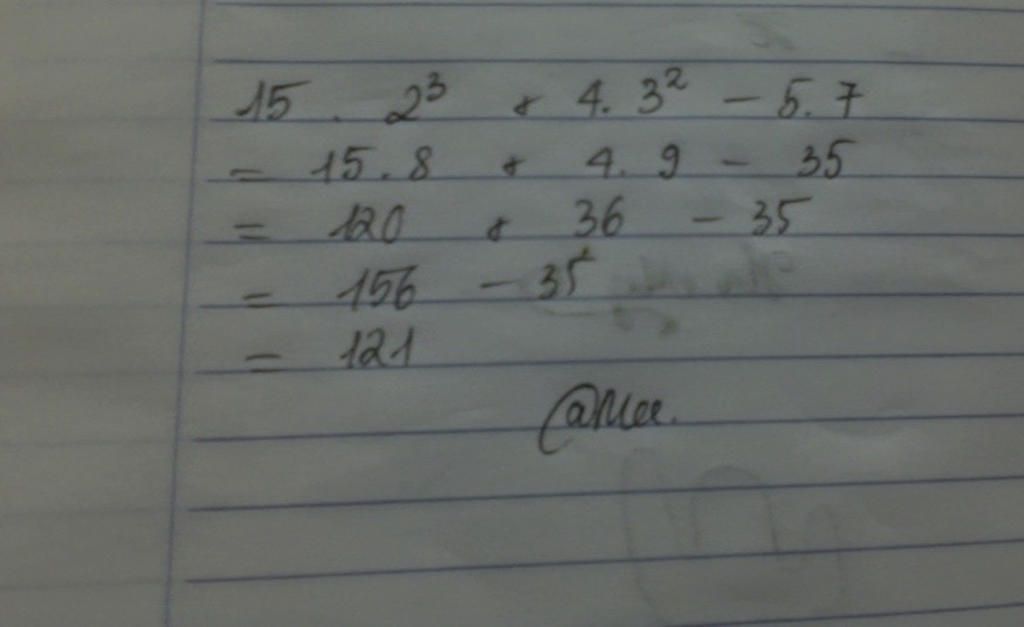 15 . 2³ + 4. 3² - 5. 7
= 15. 8 + 4. 9 - 35
= 120 + 36 - 35
= 156 - 35
= 121